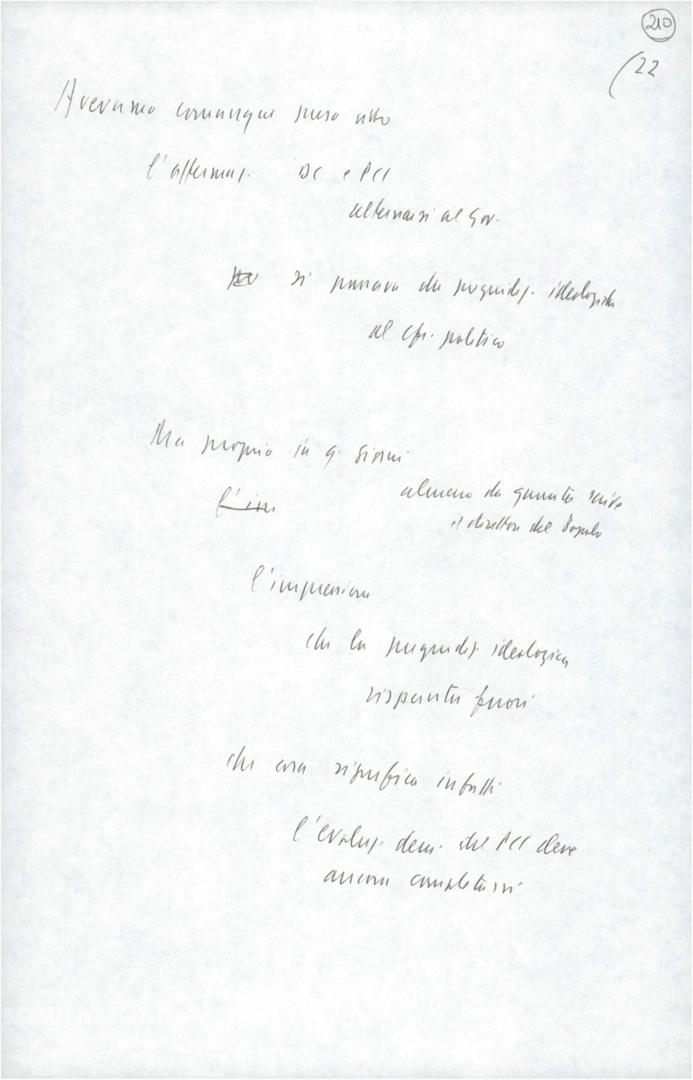 210
22
Avevamo comunque preso atto
l'affermaz. DC e PCI
alternarsi al Gov.
si passava da pregiudiz. ideologica
al cfr. politico
Ma proprio in q. giorni
l'im
almeno da quanto scrive
il direttore del Popolo
l'impressione
che la pregiudiz. ideologica
rispunta fuori
che cosa significa infatti
l'evoluz. dem. del PCI deve
ancora completarsi